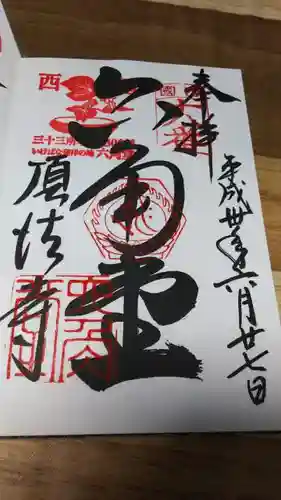 奉拝
平成卅年六月廿七日
六角堂
頂法寺
西
三十三所
いけばな発祥の地 六角堂